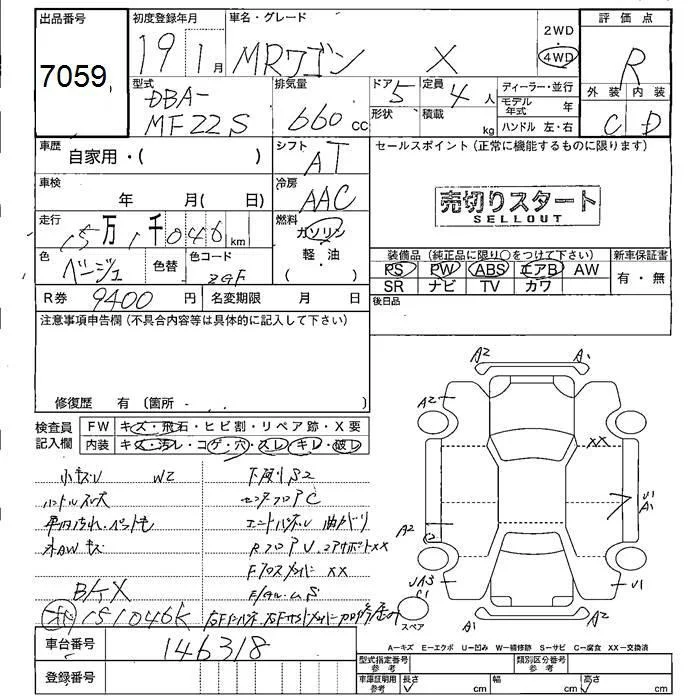 出品番号
7059
初度登録年月
19 1月
車名・グレード
MRワゴン X
2WD
4WD
評価点
R
外装 内装
C D
型式
DBA-
MF22S
排気量
660 cc
ドア 5
形状
定員 4 人
積載 kg
ディーラー・並行
モデル年式 年
ハンドル 左・右
車歴
自家用・( )
シフト
AT
セールスポイント(正常に機能するものに限ります)
売切りスタート
SELLOUT
車検
年 月( 日)
冷房
AAC
走行
15万1千046km
燃料
ガソリン
軽・油
( )
色
ベージュ
色替
色コード
ZGF
装備品(純正品に限り○をつけて下さい)
PS PW ABS エアB AW
SR ナビ TV カワ
新車保証書
有・無
R券 9400円
名変期限 月 日
後日品
注意事項申告欄(不具合内容等は具体的に記入して下さい)
修復歴 有(箇所 )
検査員記入欄
FW キズ・飛石・ヒビ割・リペア跡・X要
内装 キズ・汚レ・コゲ・穴・スレ・キレ・破レ
小キズU W2
下廻りS2
ハンドルスレ
センターフロアC
エンドパネル 曲がり
外AWキズ
RフロアU
XX
B/ケX
151046K
A2 A1
A2
XX
U1
A1
A2
UA3
C1
U1
スペア
A1 A2
車台番号
146318
登録番号
A−キズ E−エクボ U−凹み W−補修跡 S−サビ C−腐食 XX−交換済
型式指定番号 参考
類別区分番号 参考
車庫証明用 参考
長さ cm
幅 cm
高さ cm